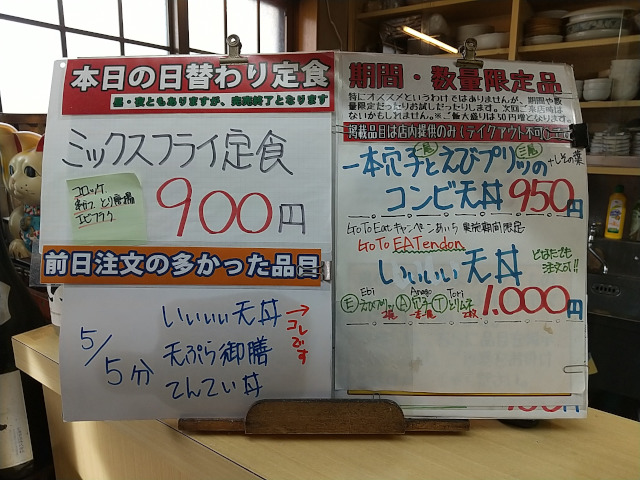 本日の日替わり定食
昼・夜ともありますが、完売終了となります
ミックスフライ定食
コロッケ
エビフライ
900円
前日注文の多かった品目
5/5分
いいいい天丼
→コレです
天ぷら御膳
てんてい丼
期間・数量限定品
特にオススメというわけではありませんが、期間や数
量限定だったりお試しだったりします。次回ご来店時は
ないかもしれません。※ご飯大盛りは50円増となります。
掲載品目は店内提供のみ(テイクアウト不可)
一本穴子とえびプリッの
+しその葉
コンビ天丼 950円
GoToEatキャンペーンあいち 実施期間限定
GoTo EATendon
いいいい天丼
どなたでも
注文可!!
Ebi Anago Tori
E えびプリッ 2尾 A 穴子 一本 T とりムネ 2枚
1.000円